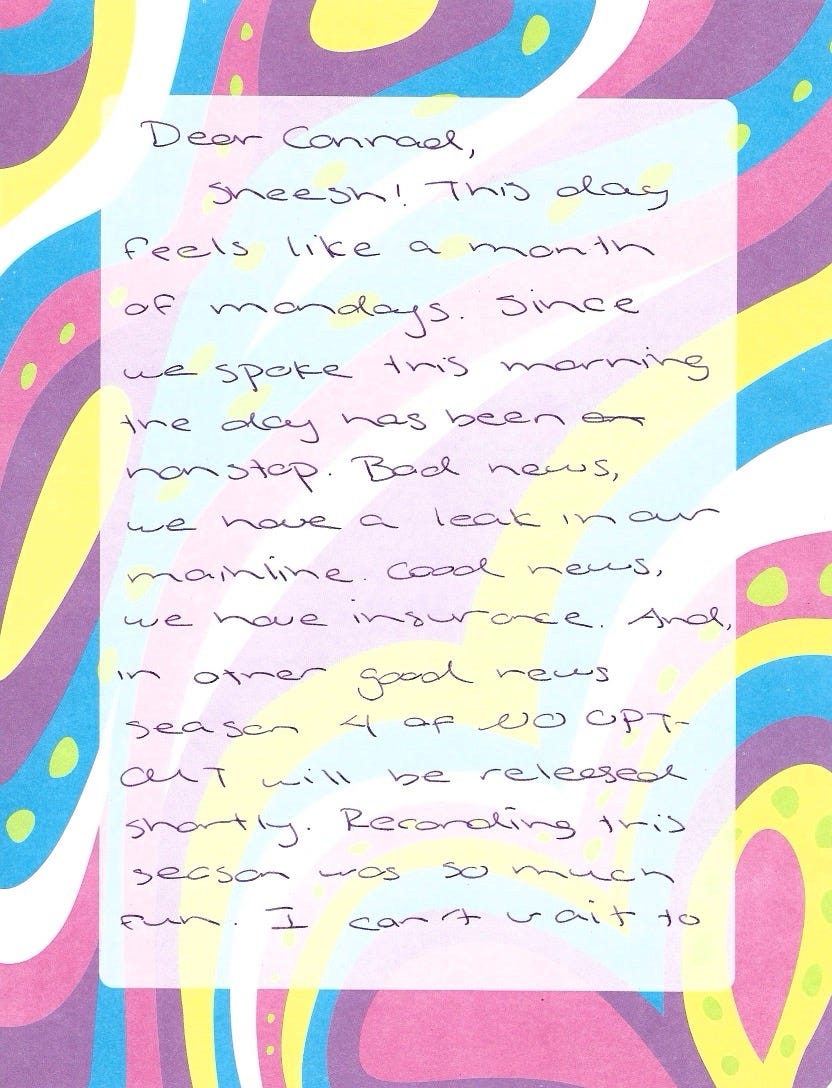 Dear Conrad,
Sheesh! This day
feels like a month
of mondays. Since
we spoke this morning
the day has been
nonstop. Bad news,
we have a leak in our
mainline. Good news,
we have insurance. And,
in other good news
season 4 of NO OPT-
OUT will be released
shortly. Recording this
season was so much
fun. I can't wait to